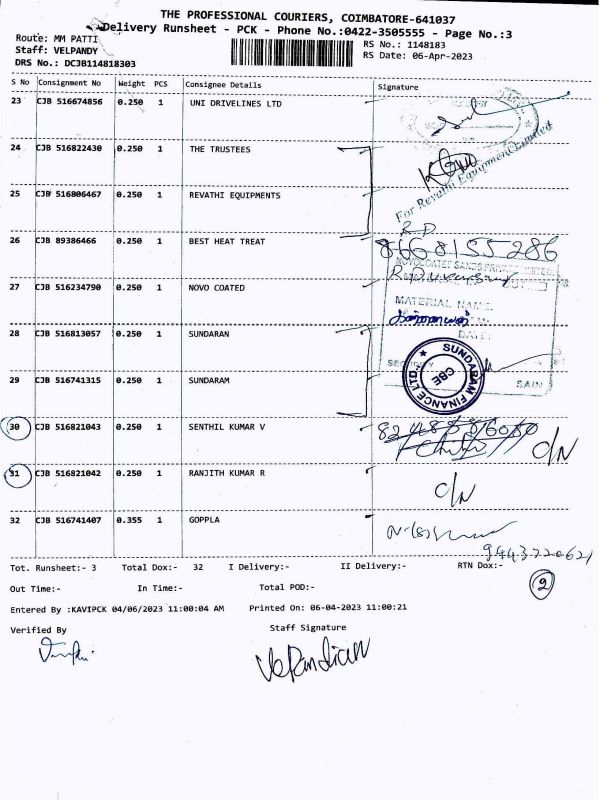 THE PROFESSIONAL COURIERS, COIMBATORE-641037
Delivery Runsheet - PCK - Phone No.:0422-3505555 - Page No.:3
Route: MM PATTI
Staff: VELPANDY
DRS No.: DCJB114818303
RS No.: 1148183
RS Date: 06-Apr-2023
S No Consignment No Weight PCS Consignee Details Signature
23 CJB 516674856 0.250 1 UNI DRIVELINES LTD
24 CJB 516822430 0.250 1 THE TRUSTEES
25 CJB 516806467 0.250 1 REVATHI EQUIPMENTS
For Revathi Equipment Limited
R.D
26 CJB 89386466 0.250 1 BEST HEAT TREAT
8668155286
27 CJB 516234790 0.250 1 NOVO COATED
MATERIAL NAME
28 CJB 516813057 0.250 1 SUNDARAN
29 CJB 516741315 0.250 1 SUNDARAM
SUNDARAM FINANCE LTD.
CBE
30 CJB 516821043 0.250 1 SENTHIL KUMAR V
C/N
31 CJB 516821042 0.250 1 RANJITH KUMAR R
C/N
32 CJB 516741407 0.355 1 GOPPLA
9443720621
Tot. Runsheet:- 3 Total Dox:- 32 I Delivery:- II Delivery:- RTN Dox:-
2
Out Time:- In Time:- Total POD:-
Entered By :KAVIPCK 04/06/2023 11:00:04 AM Printed On: 06-04-2023 11:00:21
Verified By Staff Signature
VelPandian